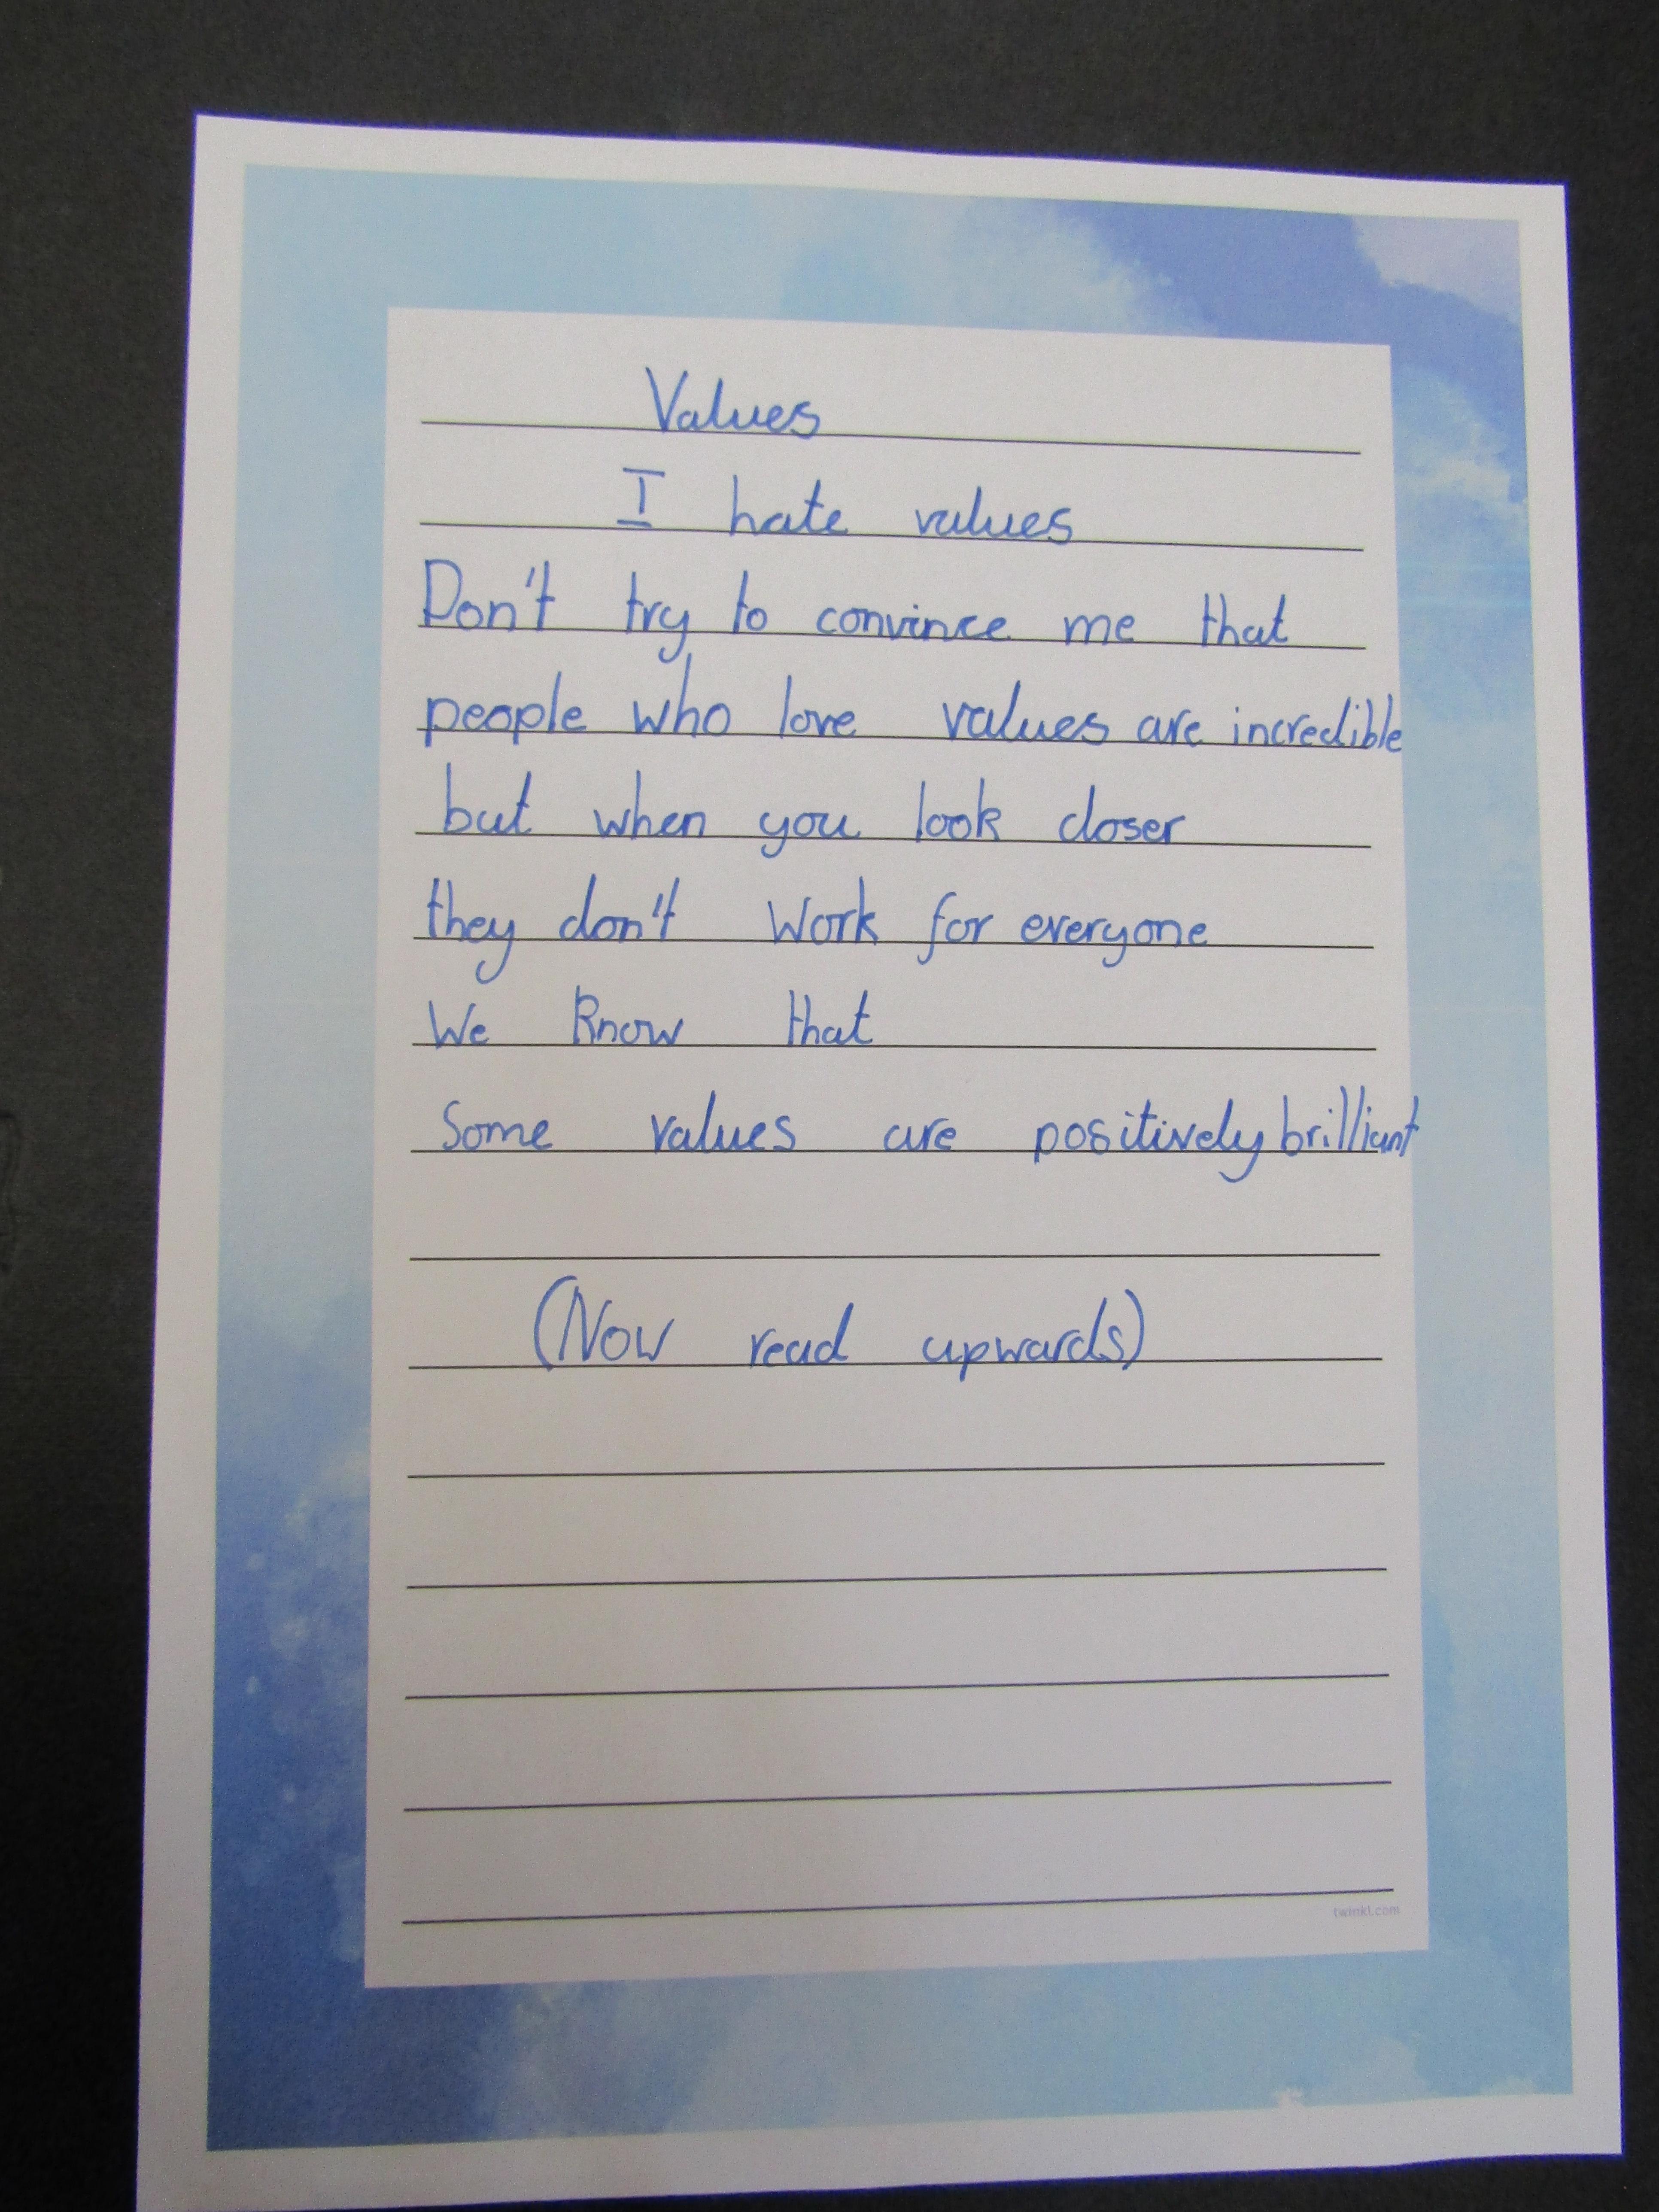 Values
I hate values
Don't try to convince me that
people who love values are incredible
but when you look closer
they don't work for everyone
We Know that
Some values are positively brilliant
(Now read upwards)
twinkl.com